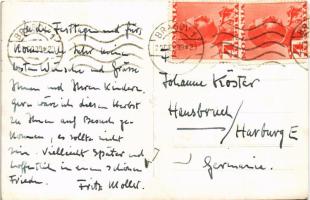 die Festtage und fürs
kommende Jahr meine
besten Wünsche und Grüsse
Ihnen und Ihren Kindern.
Gern wäre ich diesen Herbst
zu Ihnen auf Besuch ge-
kommen, es sollte nicht
sein. Vielleicht später und
hoffentlich in einem schönen
Frieden. Fritz Moller.
Johanne Köster
Hausbruch/
Harburg E
Germanie.